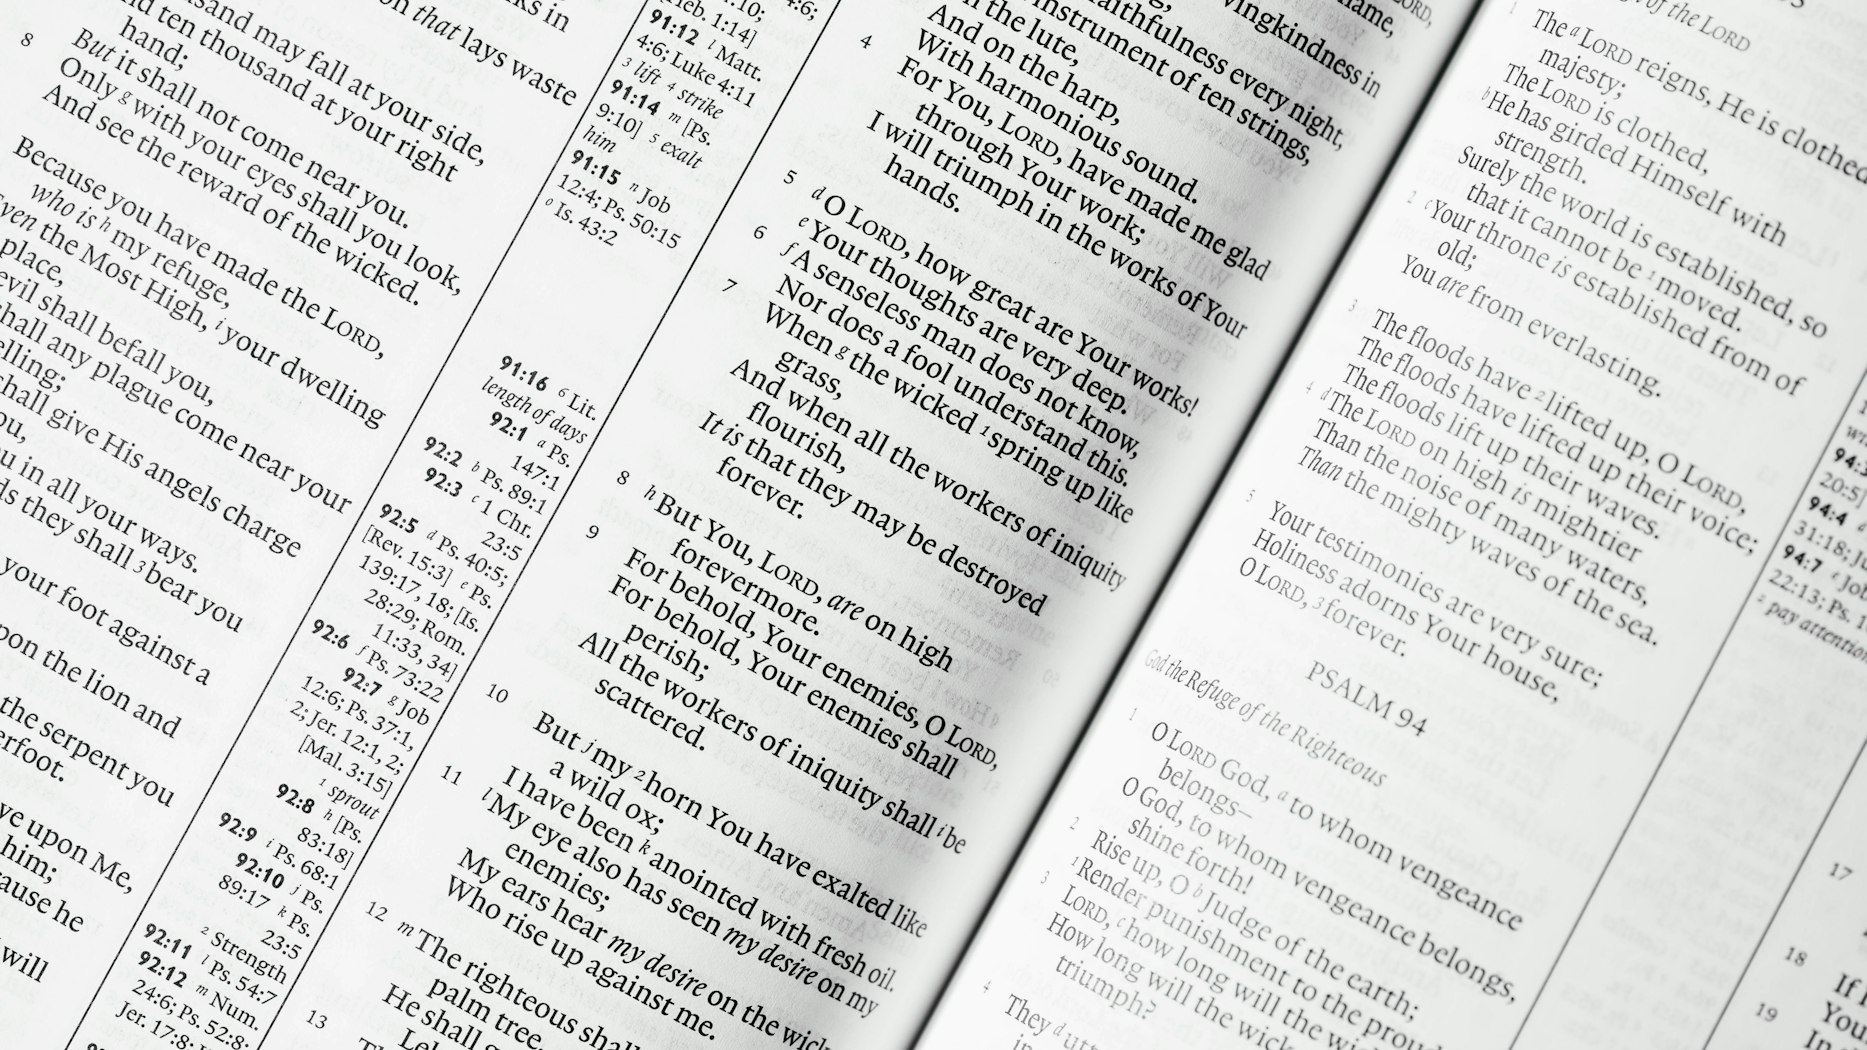 on that lays waste
sand may fall at your side,
nd ten thousand at your right
hand;
8 But it shall not come near you.
Only g with your eyes shall you look,
And see the reward of the wicked.
Because you have made the LORD,
who is h my refuge,
Even the Most High, i your dwelling
place,
evil shall befall you,
hall any plague come near your
elling;
hall give His angels charge
ou,
u in all your ways.
ds they shall 3 bear you
your foot against a
pon the lion and
the serpent you
erfoot.
ve upon Me,
him;
ause he
will
4:6;
Heb. 1:14]
91:12 l Matt.
4:6; Luke 4:11
3 lift 4 strike
91:14 m [Ps.
9:10] 5 exalt
him
91:15 n Job
12:4; Ps. 50:15
o Is. 43:2
91:16 6 Lit.
length of days
92:1 a Ps.
147:1
92:2 b Ps. 89:1
92:3 c 1 Chr.
23:5
92:5 d Ps. 40:5;
[Rev. 15:3] e Ps.
139:17, 18; [Is.
28:29; Rom.
11:33, 34]
92:6 f Ps. 73:22
92:7 g Job
12:6; Ps. 37:1,
2; Jer. 12:1, 2;
[Mal. 3:15]
1 sprout
92:8 h [Ps.
83:18]
92:9 i Ps. 68:1
92:10 j Ps.
89:17 k Ps.
23:5
2 Strength
92:11 l Ps. 54:7
92:12 m Num.
24:6; Ps. 52:8;
Jer. 17:8;
vingkindness in
name,
aithfulness every night,
instrument of ten strings,
n the lute,
And on the harp,
With harmonious sound.
4 For You, LORD, have made me glad
through Your work;
I will triumph in the works of Your
hands.
5 d O LORD, how great are Your works!
e Your thoughts are very deep.
6 f A senseless man does not know,
Nor does a fool understand this.
7 When g the wicked 1 spring up like
grass,
And when all the workers of iniquity
flourish,
It is that they may be destroyed
forever.
8 h But You, LORD, are on high
forevermore.
9 For behold, Your enemies, O LORD,
For behold, Your enemies shall
perish;
All the workers of iniquity shall i be
scattered.
10 But j my 2 horn You have exalted like
a wild ox;
I have been k anointed with fresh oil.
11 l My eye also has seen my desire on my
enemies;
My ears hear my desire on the wick
Who rise up against me.
12 m The righteous shall
palm tree,
He shall g
13
of the LORD
1 The a LORD reigns, He is clothed
majesty;
The LORD is clothed,
b He has girded Himself with
strength.
Surely the world is established, so
that it cannot be 1 moved.
2 c Your throne is established from of
old;
You are from everlasting.
3 The floods have 2 lifted up, O LORD,
The floods have lifted up their voice;
The floods lift up their waves.
4 d The LORD on high is mightier
Than the noise of many waters,
Than the mighty waves of the sea.
5 Your testimonies are very sure;
Holiness adorns Your house,
O LORD, 3 forever.
PSALM 94
God the Refuge of the Righteous
1 O LORD God, a to whom vengeance
belongs—
O God, to whom vengeance belongs,
shine forth!
2 Rise up, O b Judge of the earth;
1 Render punishment to the prou
3 LORD, c how long will the wick
How long will the wick
triumph?
4 They d utt
in
94:4
31:18; Ju
94:7 e Job
22:13; Ps. 1
2 pay attention
17
18
If
19
You
In th